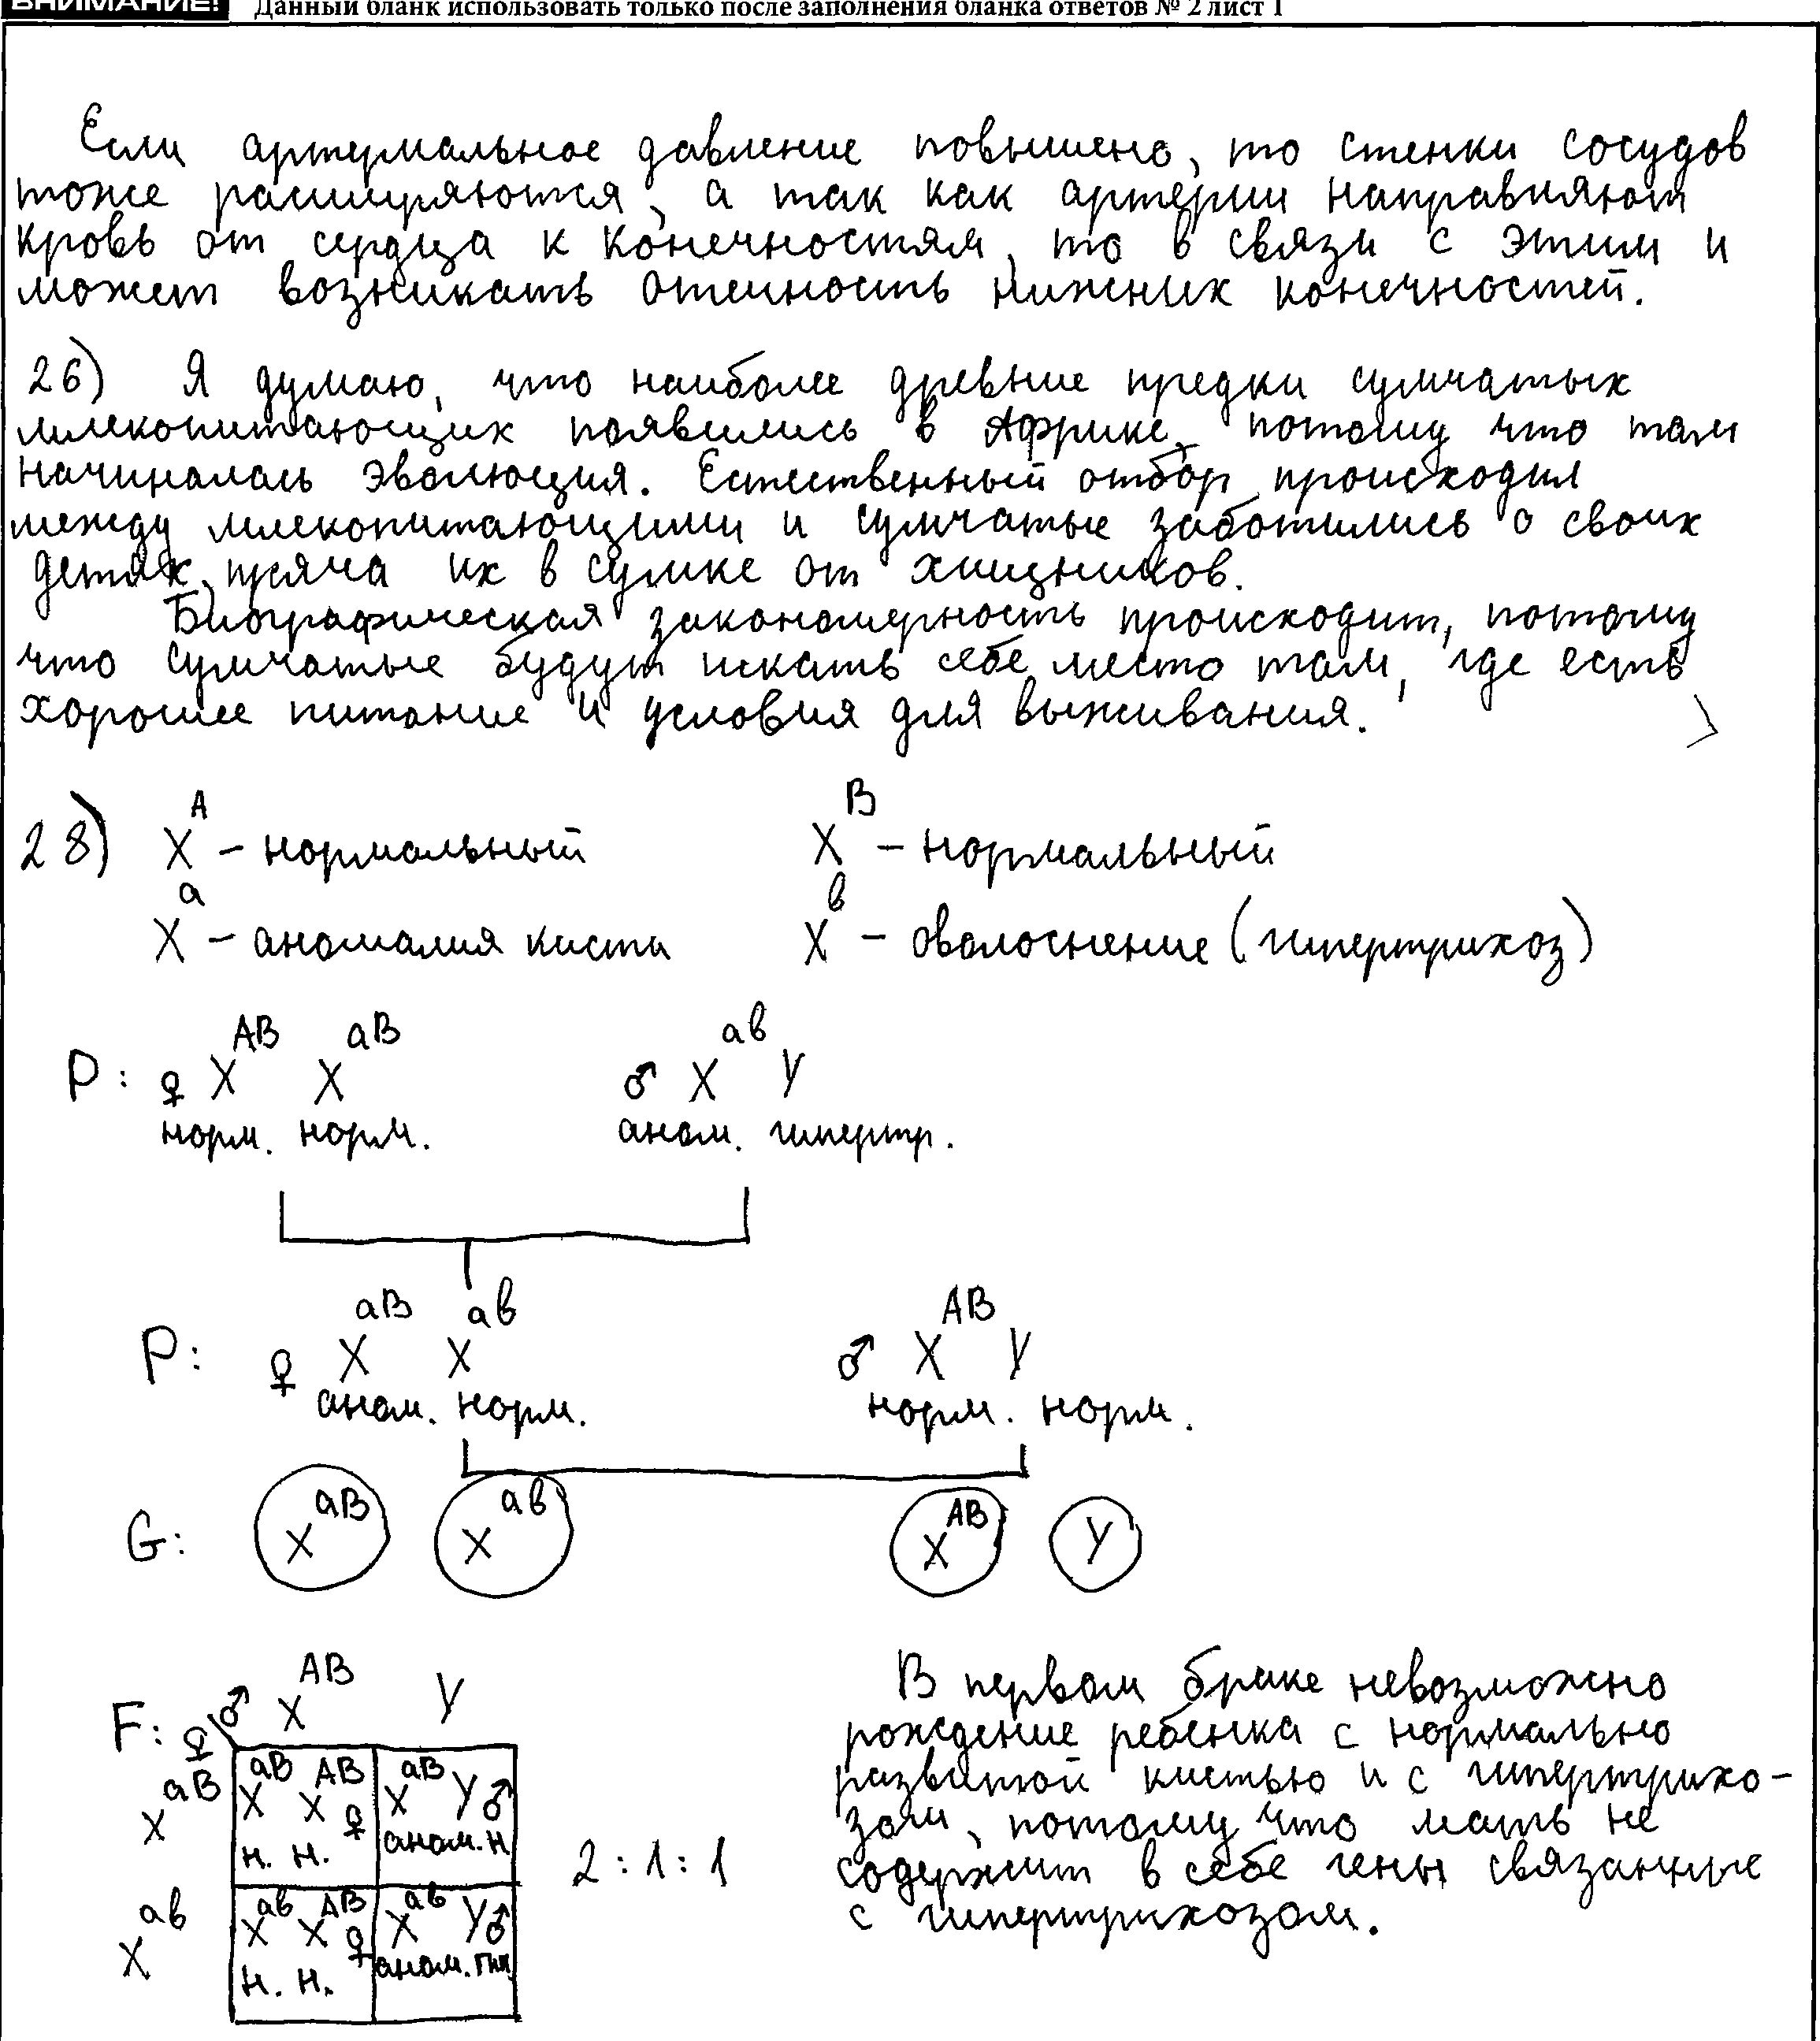 ВНИМАНИЕ! Данный бланк использовать только после заполнения бланка ответов № 2 лист 1
Если артериальное давление повышено, то стенки сосудов
тоже расширяются, а так как артерии направляют
кровь от сердца к конечностям, то в связи с этим и
может возникать отечность нижних конечностей.
26) Я думаю, что наиболее древние предки сумчатых
млекопитающих появились в Африке, потому что там
начиналась эволюция. Естественный отбор происходил
между млекопитающими и сумчатые заботились о своих
детях, пряча их в сумке от хищников.
Биографическая закономерность происходит, потому
что сумчатые будут искать себе место там, где есть
хорошее питание и условия для выживания.
28) X^A – нормальный X^B – нормальный
X^a – аномалия кисти X^в – оволоснение (гипертрихоз)
P: ♀ X^AB X^aB ♂ X^aв Y
норм. норм. аном. гипертр.
P: ♀ X^aB X^aв ♂ X^AB Y
аном. норм. норм. норм.
G: X^aB X^aв X^AB Y
F: ♀\♂ X^AB Y
X^aB X^aB X^AB ♀ X^aB Y ♂
н. н. аном. н
2 : 1 : 1
X^aв X^aв X^AB ♀ X^aв Y ♂
н. н. аном. гип.
В первом браке невозможно
рождение ребенка с нормально
развитой кистью и с гипертрихо-
зом, потому что мать не
содержит в себе гены связанные
с гипертрихозом.